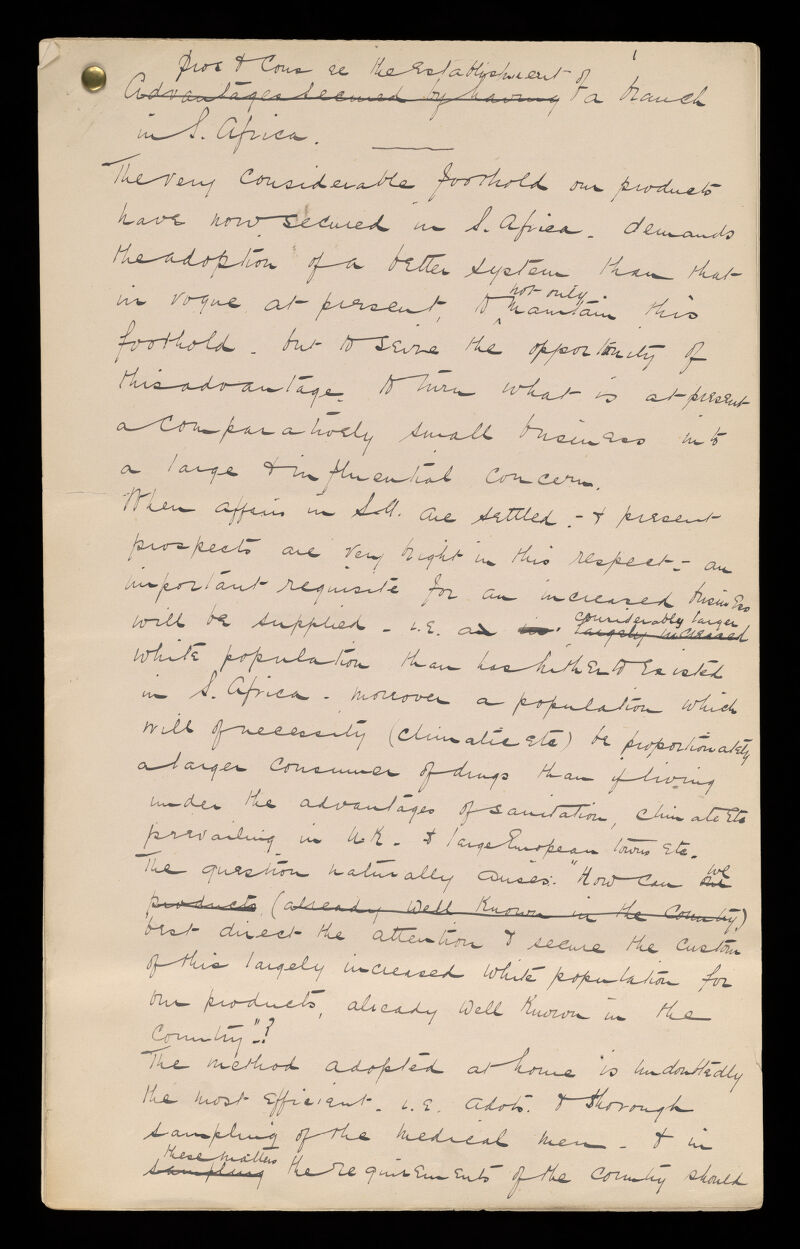 Pros & Cons re the establishment of
Advantages secured by having & a branch
in S. Africa.
The very considerable foothold our products
have now secured in S. Africa - demands
the adoption of a better system than that
in vogue at present, to not only maintain this
foothold - but to seize the opportunity of
this advantage, to turn what is at present
a comparatively small business into
a large & influential concern.
When affairs in S.A. are settled - & present
prospects are very bright in this respect - an
important requisite for an increased business
will be supplied - i.e. a considerably larger
largely increased
white population than has hitherto existed
in S. Africa - moreover a population which
will of necessity (climatic etc) be proportionately
a larger consumer of drugs than if living
under the advantages of sanitation, climate etc
prevailing in U.K. & large European towns etc.
The question naturally arises: "How can we our
products, (already well known in the country)
best direct the attention & secure the custom
of this largely increased white population for
our products, already well known in the
country"?
The method adopted at home is undoubtedly
the most efficient - i.e. advts. & thorough
sampling of the medical men - & in
these matters
sampling the requirements of the country should